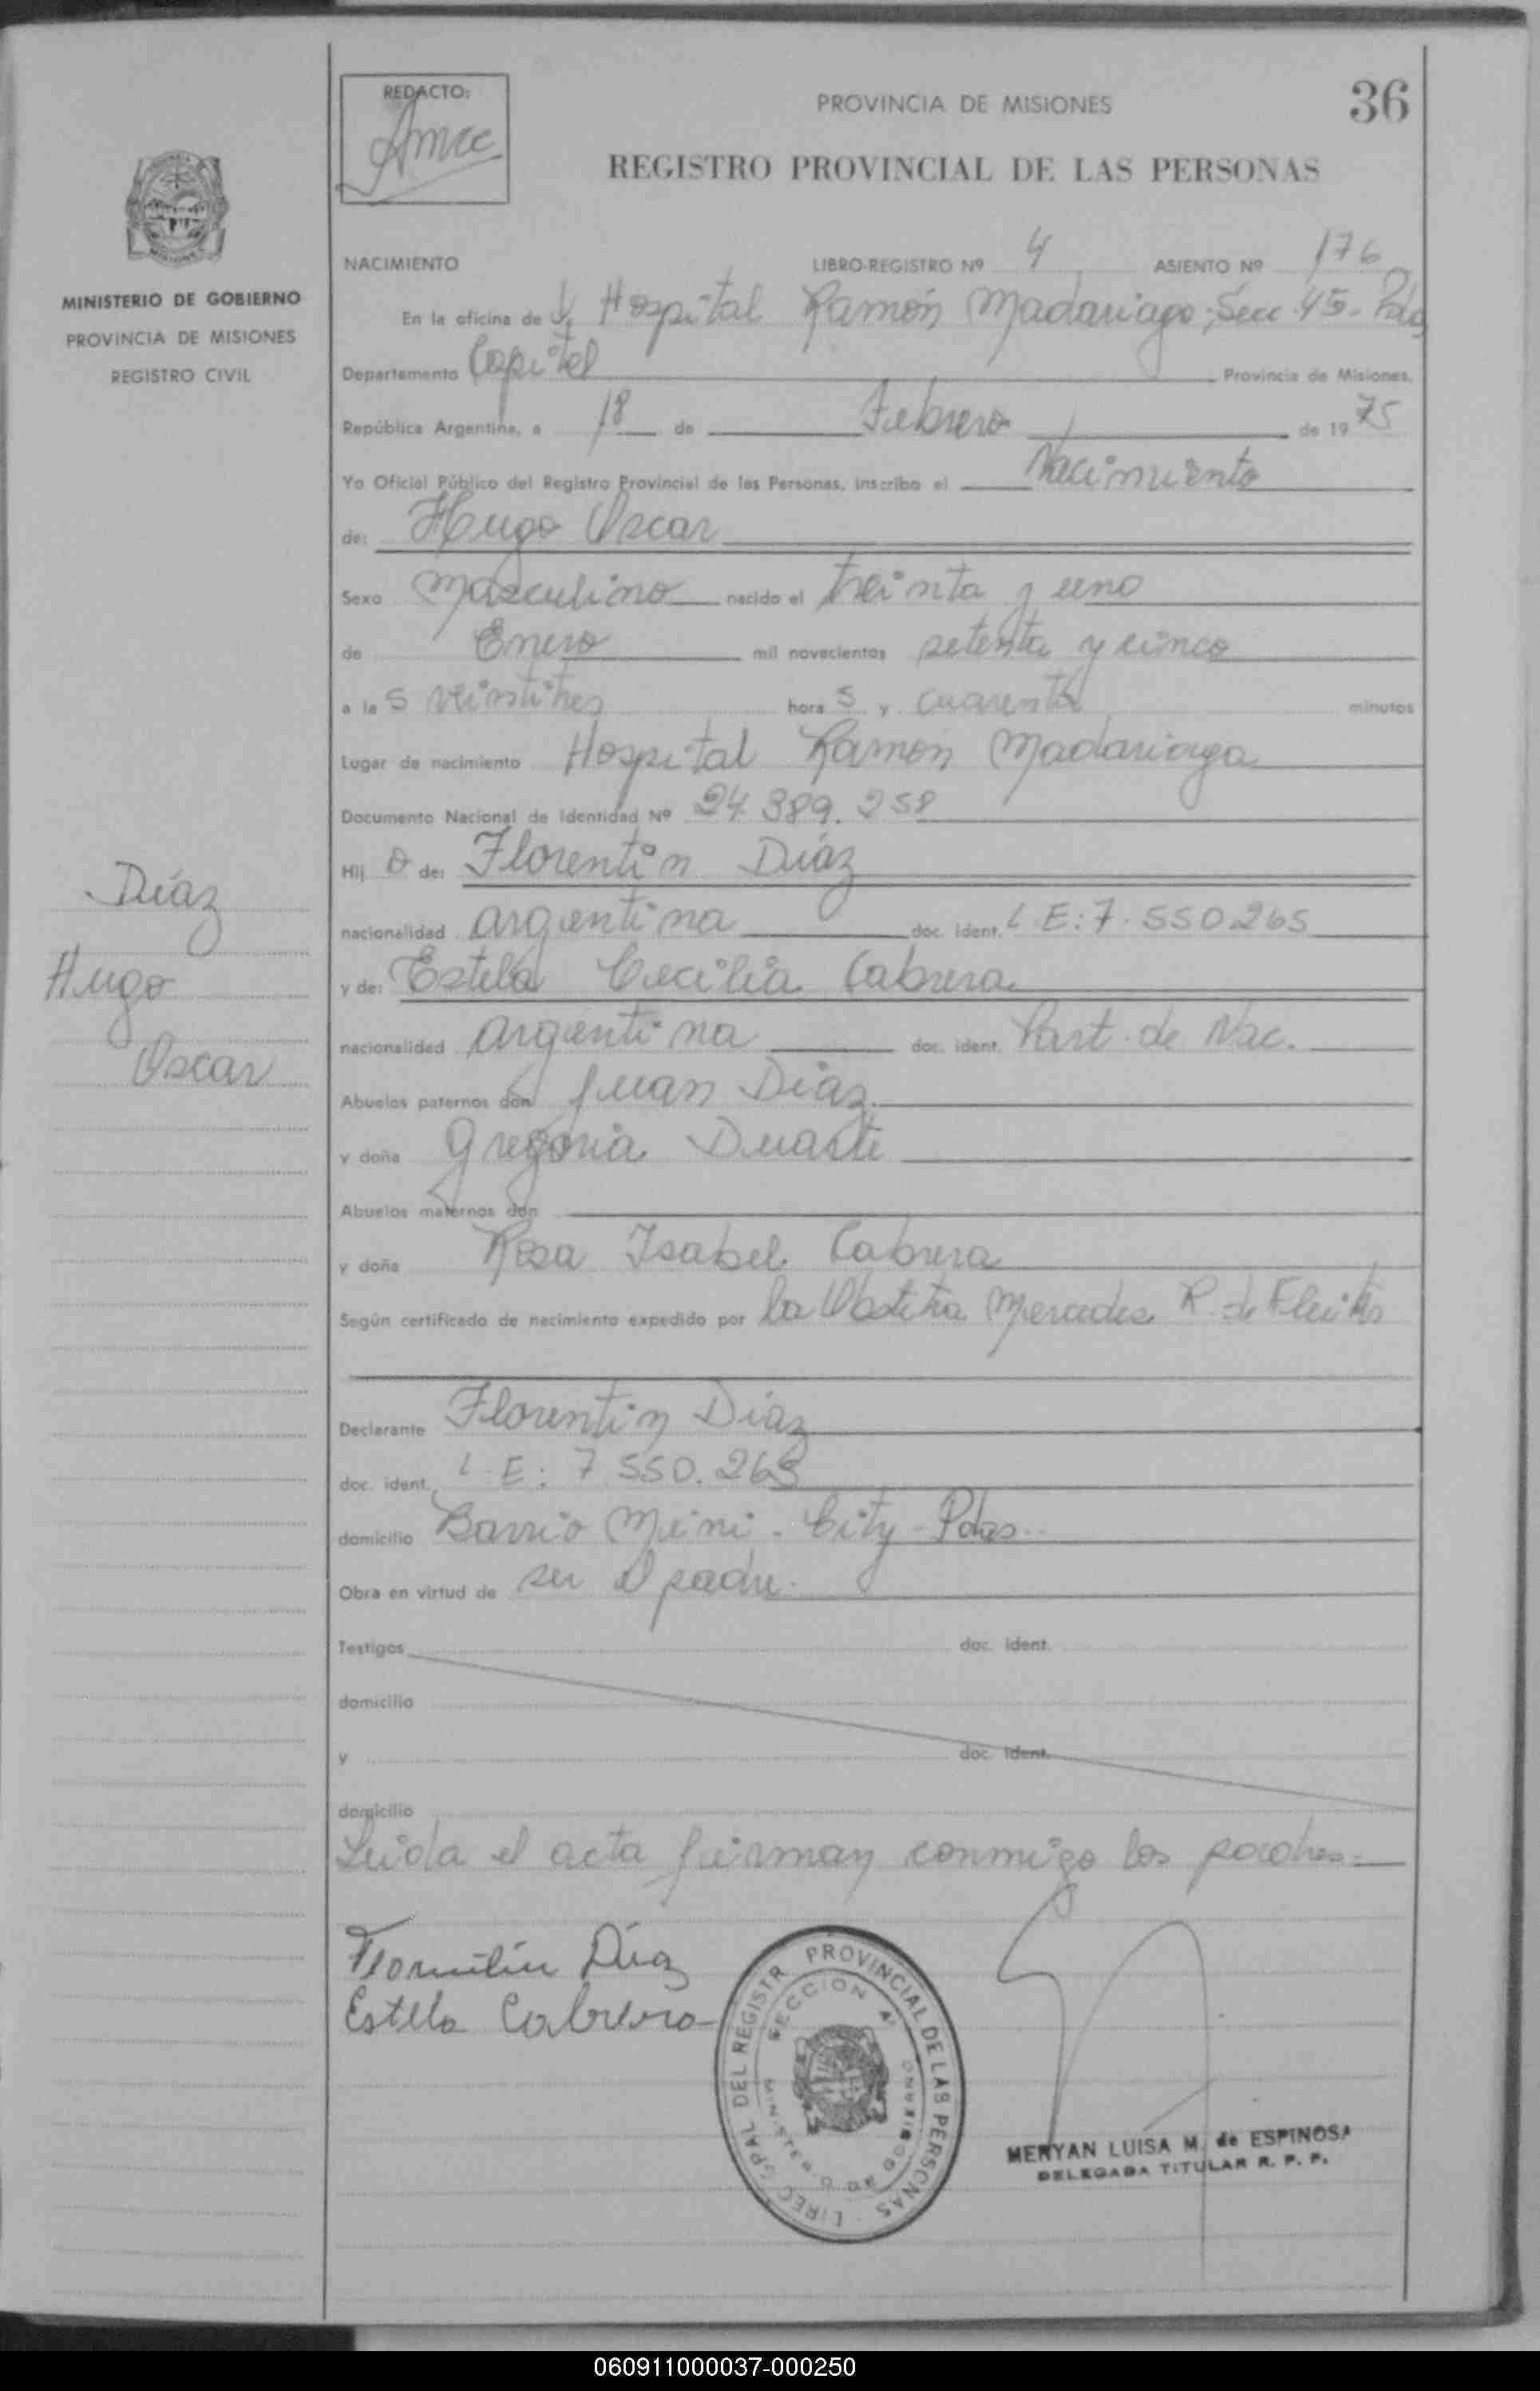 REDACTO:
PROVINCIA DE MISIONES
36
REGISTRO PROVINCIAL DE LAS PERSONAS
MINISTERIO DE GOBIERNO
PROVINCIA DE MISIONES
REGISTRO CIVIL
NACIMIENTO LIBRO-REGISTRO Nº 4 ASIENTO Nº 176
En la oficina de Hospital Ramón Madariaga, Secc. 45-
Departamento Capital Provincia de Misiones,
República Argentina, a 18 de Febrero de 1975
Yo Oficial Público del Registro Provincial de las Personas, inscribo el Nacimiento
de: Hugo Oscar
Sexo masculino nacido el treinta y uno
de Enero mil novecientos setenta y cinco
a las veintitres horas y cuarenta minutos
Lugar de nacimiento Hospital Ramón Madariaga
Documento Nacional de Identidad Nº 24.389.258
Hijo de: Florentín Díaz
nacionalidad argentina doc. ident. L.E: 7.550.265
y de: Estela Cecilia Cabrera
nacionalidad argentina doc. ident. Part. de Nac.
Abuelos paternos don Juan Díaz
y doña Gregoria Duarte
Abuelos maternos don
y doña Rosa Isabel Cabrera
Según certificado de nacimiento expedido por la Obstetra Mercedes R. de Fleitas
Díaz
Hugo
Oscar
Declarante Florentín Díaz
doc. ident. L.E: 7.550.265
domicilio Barrio Mini-City-Pdas.
Obra en virtud de ser el padre.
Testigos doc. ident.
domicilio
y doc. ident.
domicilio
Leida el acta firman conmigo los padres.
Florentín Díaz
Estela Cabrera
PROVINCIAL DE LAS PERSONAS
DEL REGISTR
SECCION
MERYAN LUISA M. de ESPINOSA
DELEGADA TITULAR R. P. P.
060911000037-000250